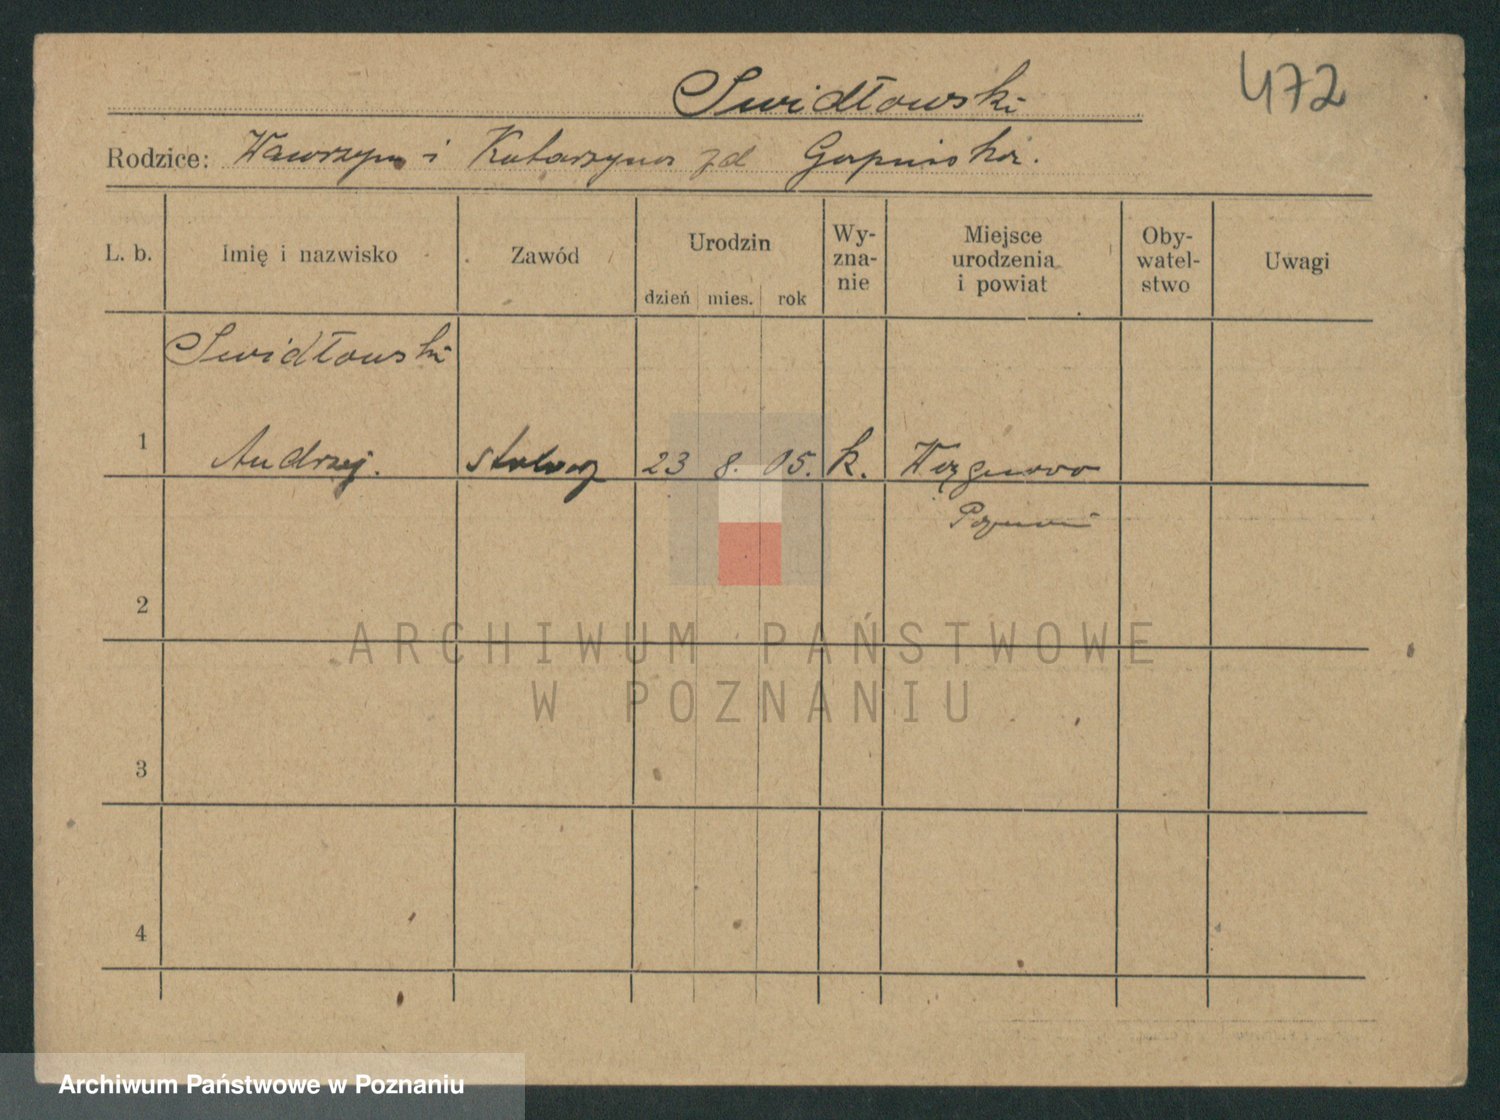 Swidłowski
472
Rodzice: Wawrzyn i Katarzyna zd
L. b. Imię i nazwisko Zawód Urodzin dzień mies. rok Wy-zna-nie Miejsce urodzenia i powiat Oby-watel-stwo Uwagi
Swidłowski
1 Andrzej. stolarz 23 8. 05. k.
Poznań
2
ARCHIWUM PAŃSTWOWE
W POZNANIU
3
4
Archiwum Państwowe w Poznaniu